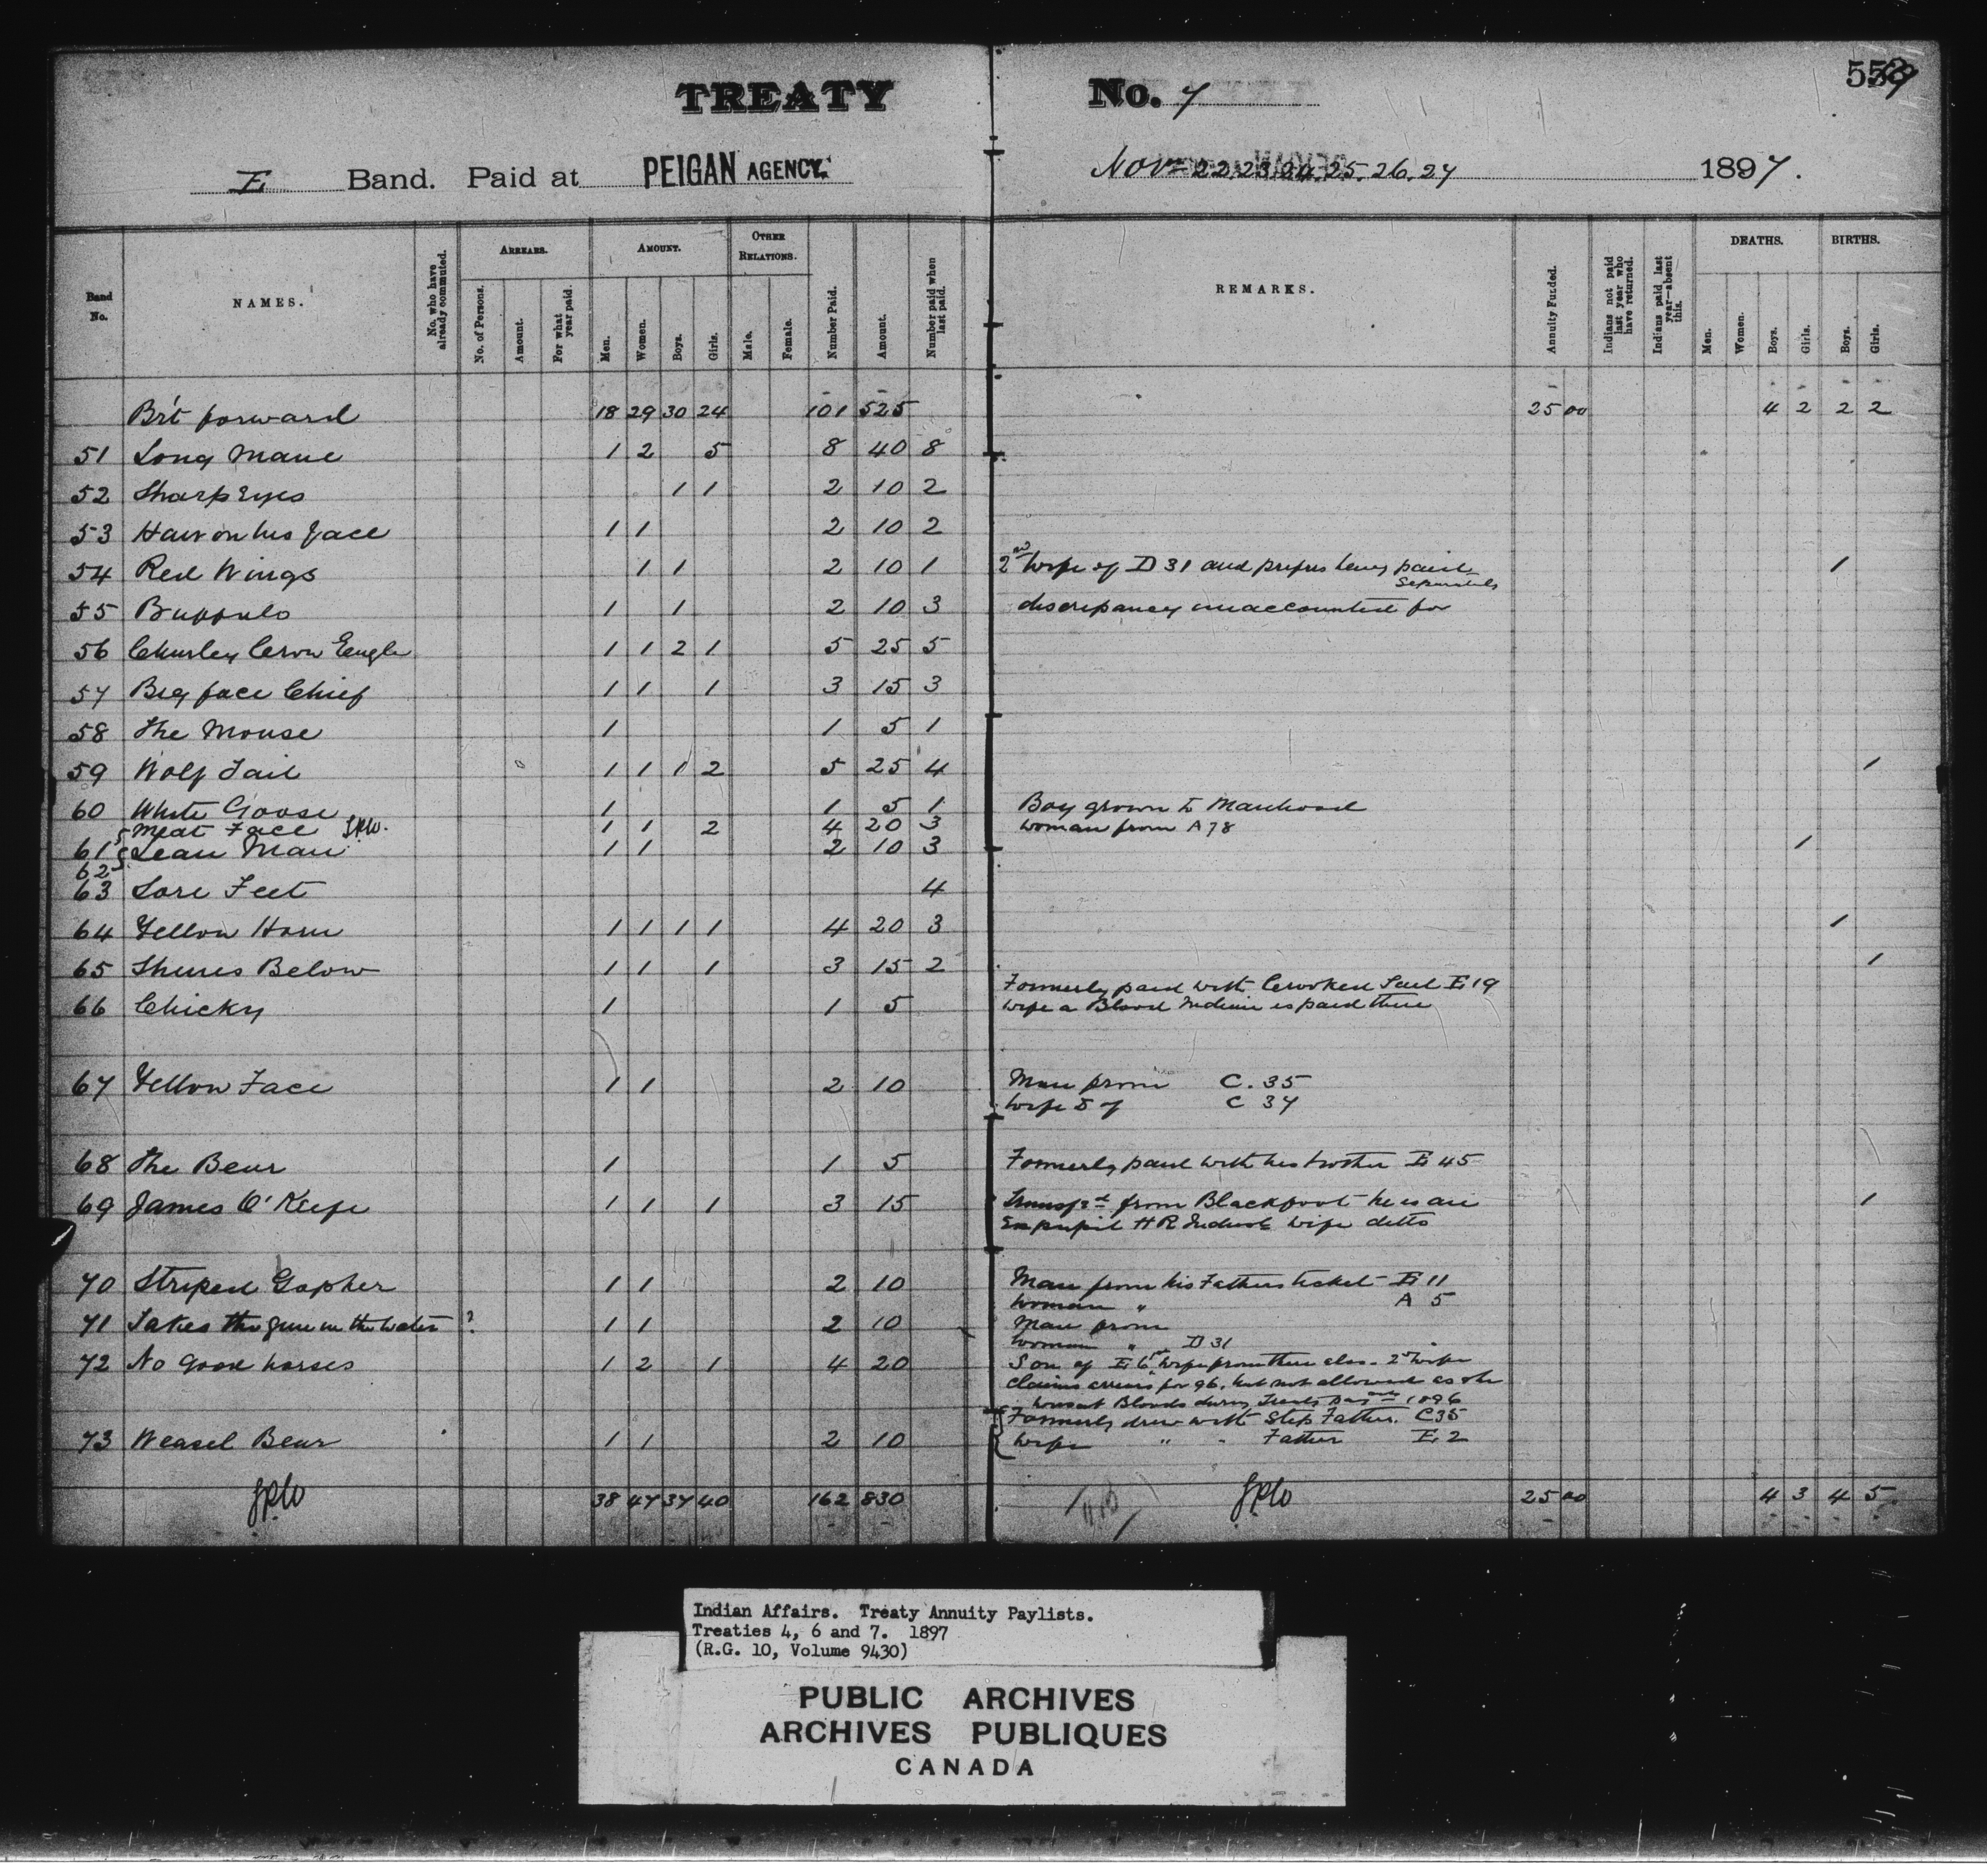 TREATY No. 7
559
E Band. Paid at PEIGAN AGENCY. Nov 22.23.24.25.26.27 1897.
Band No.
NAMES.
No. who have already commuted.
ARREARS.
No. of Persons.
Amount.
For what year paid.
AMOUNT.
Men.
Women.
Boys.
Girls.
OTHER RELATIONS.
Male.
Female.
Number Paid.
Amount.
Number paid when last paid.
REMARKS.
Annuity Funded.
Indians not paid last year who have returned.
Indians paid last year—absent this.
DEATHS.
Men.
Women.
Boys.
Girls.
BIRTHS.
Boys.
Girls.
Br't forward 18 29 30 24 101 525 25 00 4 2 2 2
51 Long Mane 1 2 5 8 40 8
52 Sharp Eyes 1 1 2 10 2
53 Hair on his face 1 1 2 10 2
54 Red Wings 1 1 2 10 1 2nd wife of D 31 and prefers being paid separately 1
55 Buffalo 1 1 2 10 3 discrepancy unaccounted for
56 Charley Crow Eagle 1 1 2 1 5 25 5
57 Big face Chief 1 1 1 3 15 3
58 The Mouse 1 1 5 1
59 Wolf Tail 1 1 1 2 5 25 4 1
60 White Goose 1 1 5 1 Boy grown to Manhood
Meat Face JPW. 1 1 2 4 20 3 woman from A 78
61 Lean Man 1 1 2 10 3 1
62
63 Sore Feet 4
64 Yellow Horn 1 1 1 1 4 20 3 1
65 Shines Below 1 1 1 3 15 2 1
Formerly paid with Crooked Tail E 19
66 Chicky 1 1 5 wife a Blood Indian is paid there
67 Yellow Face 1 1 2 10 Man from C. 35
wife D of C 37
68 The Bear 1 1 5 Formerly paid with his brother E 45
69 James O'Keefe 1 1 1 3 15 Transfd from Blackfoot he is an 1
Ex pupil H R Indust wife ditto
70 Striped Gopher 1 1 2 10 Man from his Fathers ticket E 11
woman " A 5
71 Takes the gun in the water ? 1 1 2 10 Man from
woman " D 31
72 No Good horses 1 2 1 4 20 Son of E 6 1st wife from there also. 2nd wife
claims arrears for 96, but not allowed as she
was at Bloods during Treaty 1896
Formerly drew with Step Father. C35
73 Weasel Bear 1 1 2 10 wife " " Father E 2
JPW 38 47 37 40 162 830 JPW 25 00 4 3 4 5
Indian Affairs. Treaty Annuity Paylists.
Treaties 4, 6 and 7. 1897
(R.G. 10, Volume 9430)
PUBLIC ARCHIVES
ARCHIVES PUBLIQUES
CANADA